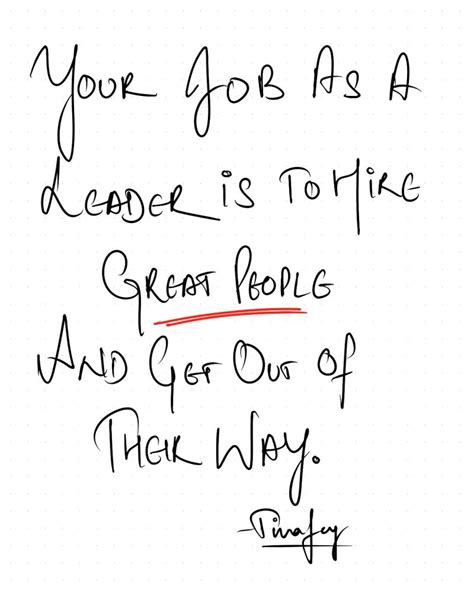 Your Job As A
Leader is To Hire
Great People
And Get Out Of
Their Way.
-Tina Fey